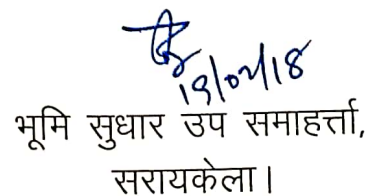 19/02/18
भूमि सुधार उप समाहर्त्ता,
सरायकेला।